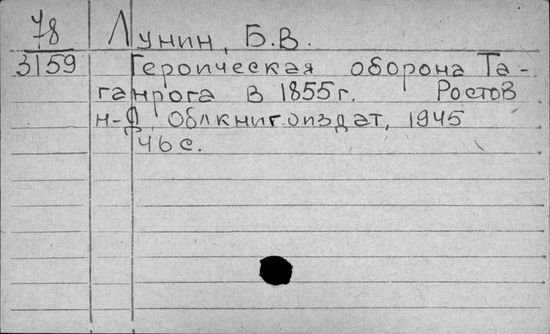 78 Лунин, Б.В.
3159 Героическая оборона Та-
ганрога в 1855г. Ростов
н-Д, Облкнигоиздат, 1945
46 с.